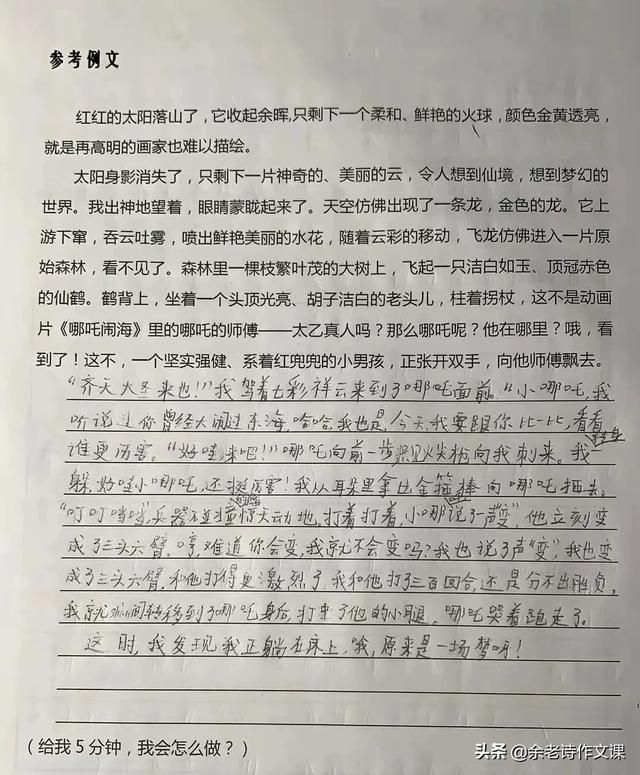 参考例文
红红的太阳落山了，它收起余晖,只剩下一个柔和、鲜艳的火球，颜色金黄透亮，
就是再高明的画家也难以描绘。
太阳身影消失了，只剩下一片神奇的、美丽的云，令人想到仙境，想到梦幻的
世界。我出神地望着，眼睛蒙眬起来了。天空仿佛出现了一条龙，金色的龙。它上
游下窜，吞云吐雾，喷出鲜艳美丽的水花，随着云彩的移动，飞龙仿佛进入一片原
始森林，看不见了。森林里一棵枝繁叶茂的大树上，飞起一只洁白如玉、顶冠赤色
的仙鹤。鹤背上，坐着一个头顶光亮、胡子洁白的老头儿，柱着拐杖，这不是动画
片《哪吒闹海》里的哪吒的师傅——太乙真人吗？那么哪吒呢？他在哪里？哦，看
到了！这不，一个坚实强健、系着红兜兜的小男孩，正张开双手，向他师傅飘去。
“齐天大圣来也！”我驾着七彩祥云来到了哪吒面前。“小哪吒，我
听说过你曾经大闹过东海，哈哈，我也是，今天我要跟你比一比，看看
谁更厉害。”“好哇，来吧！”哪吒向前一步，火尖枪向我刺来。我一
躲，好哇小哪吒，还挺厉害！我从耳朵里拿出金箍棒向哪吒捅去。
“叮叮当当”，兵器碰撞惊天动地。打着打着，小哪说了声“变”，他立刻变
成了三头六臂。哼，难道你会变，我就不会变吗？我也说了声“变”，我也变
成了三头六臂，和他打得更激烈了。我和他打了三百回合，还是分不出胜负，
我就瞬间转移到了哪吒身后，打中了他的小腿。哪吒哭着跑走了。
这时，我发现我正躺在床上，哦，原来是一场梦呀！
（给我5分钟，我会怎么做？）
头条 @余老诗作文课